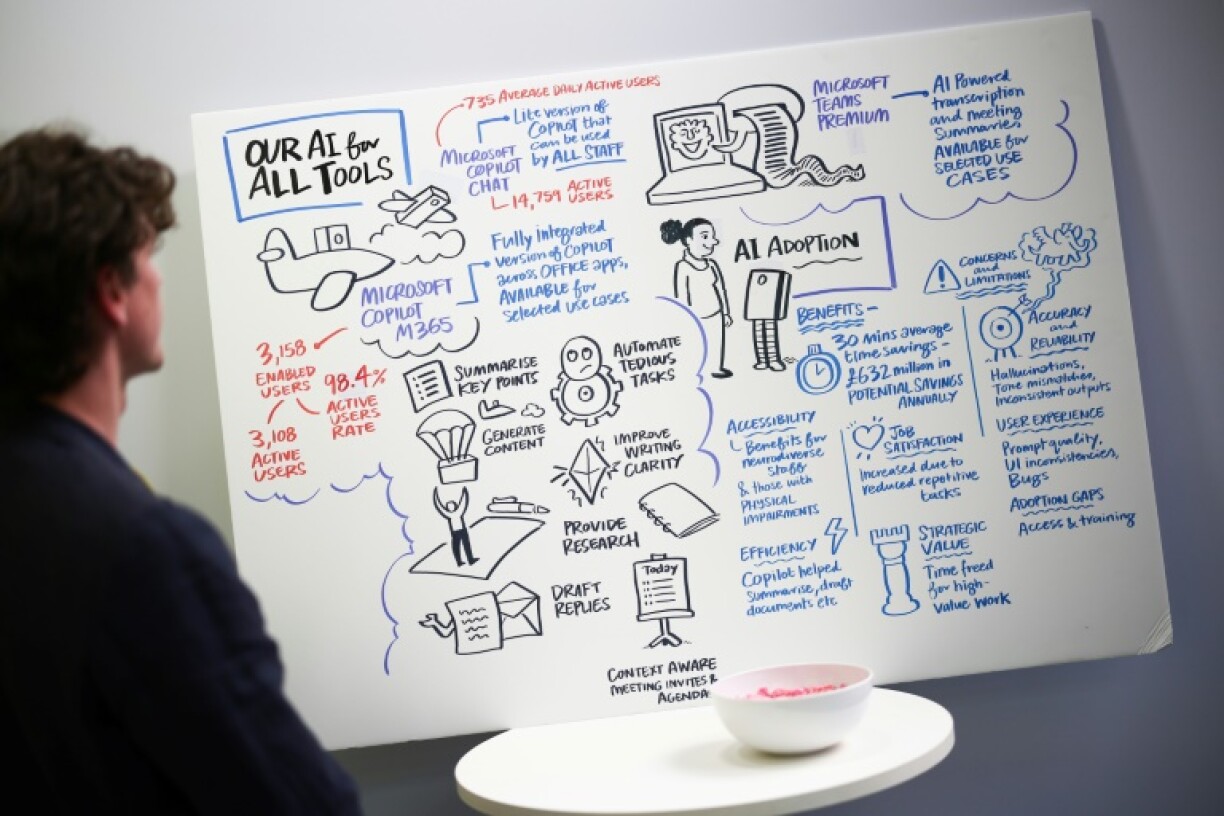 OUR AI for
ALL TOOLS
735 AVERAGE DAILY ACTIVE USERS
Lite version of
COPILOT that
can be used
by ALL STAFF
MICROSOFT
COPILOT
CHAT
14,759 ACTIVE
USERS
Fully integrated
version of COPILOT
across OFFICE apps,
AVAILABLE for
selected use cases
MICROSOFT
COPILOT
M365
3,158
ENABLED
USERS
98.4%
ACTIVE
USERS
RATE
3,108
ACTIVE
USERS
SUMMARISE
KEY POINTS
AUTOMATE
TEDIOUS
TASKS
GENERATE
CONTENT
IMPROVE
WRITING
CLARITY
PROVIDE
RESEARCH
DRAFT
REPLIES
Today
CONTEXT AWARE
MEETING INVITES &
AGENDA
MICROSOFT
TEAMS
PREMIUM
AI Powered
transcription
and meeting
Summaries
AVAILABLE for
SELECTED USE
CASES
AI ADOPTION
BENEFITS –
30 mins average
time savings –
£632 million in
POTENTIAL SAVINGS
ANNUALLY
ACCESSIBILITY
Benefits for
neurodiverse
staff
& those with
PHYSICAL
IMPAIRMENTS
JOB
SATISFACTION
Increased due to
reduced repetitive
tasks
EFFICIENCY
Copilot helped
summarise, draft
documents etc
STRATEGIC
VALUE
Time freed
for high-
value work
CONCERNS
and
LIMITATIONS
ACCURACY
and
RELIABILITY
Hallucinations,
Tone mismatches,
Inconsistent outputs
USER EXPERIENCE
Prompt quality,
UI inconsistencies,
Bugs
ADOPTION GAPS
Access & training